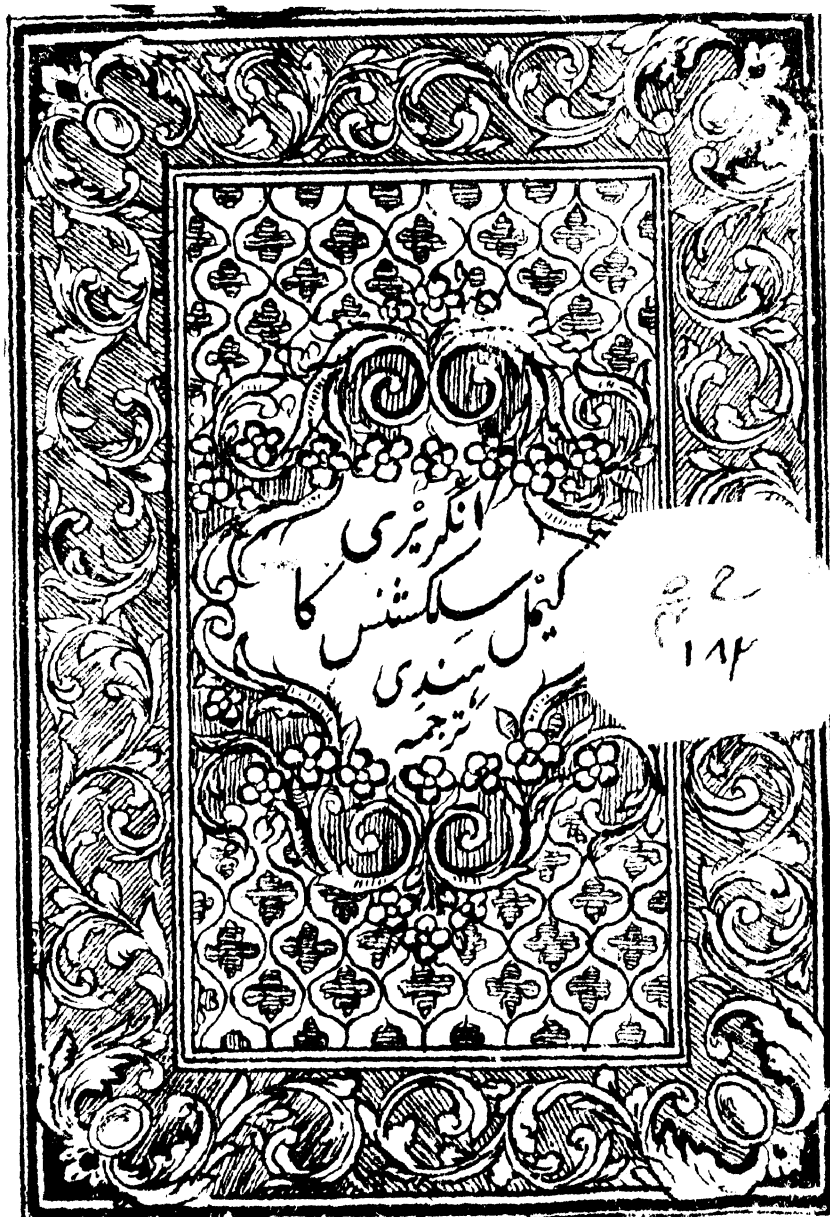 انگریزی
کیمکل سلکشنس کا
ہندی
ترجمہ
۱۸۴